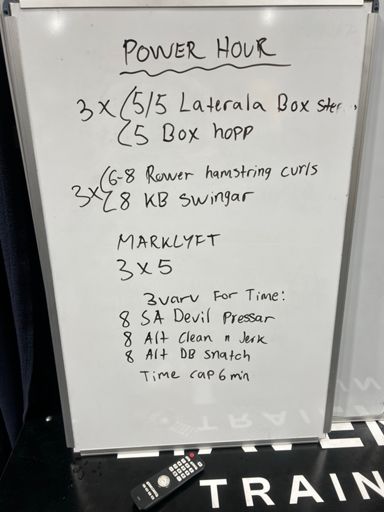 POWER HOUR
3x 5/5 Laterala Box
5 Box hopp
3x 6-8 Rower hamstring curls
8 KB Swingar
MARKLYFT
3x5
3varv For Time:
8 SA Devil Pressar
8 Alt Clean n Jerk
8 Alt DB snatch
Time cap 6 min
TRAIN